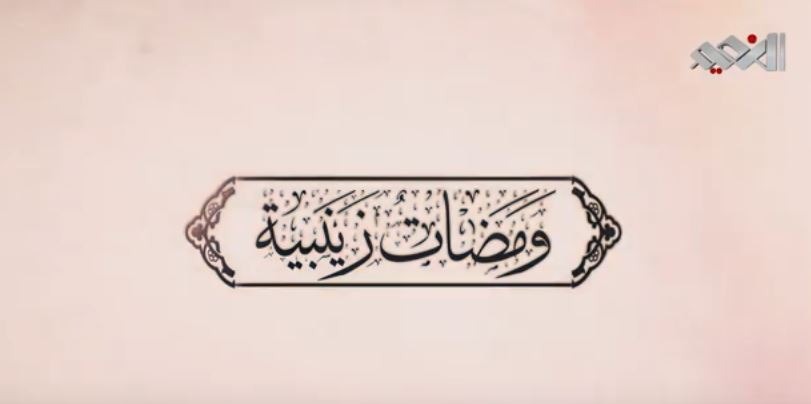 الغدير
وَمَضَاتُ زَينَبية